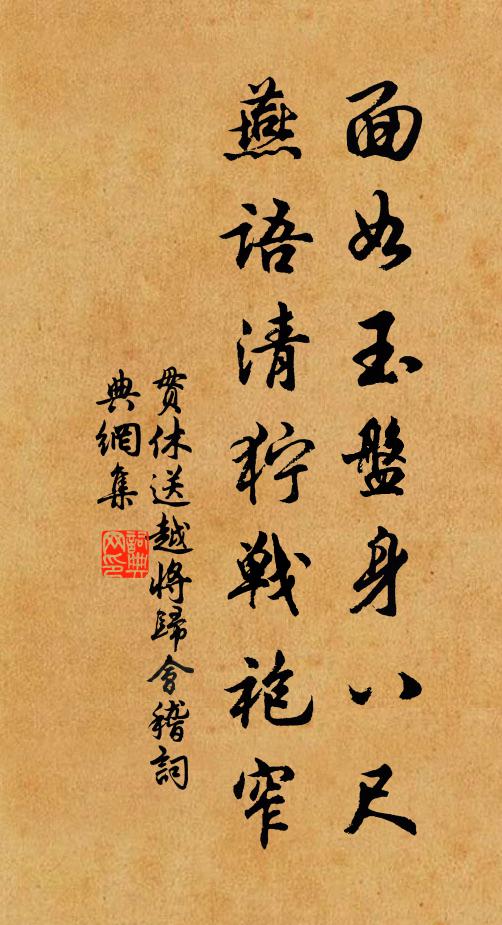 面如玉盤身八尺
燕語清狞戰袍窄
貫休送越將歸會稽詞
典網集
詞典網印